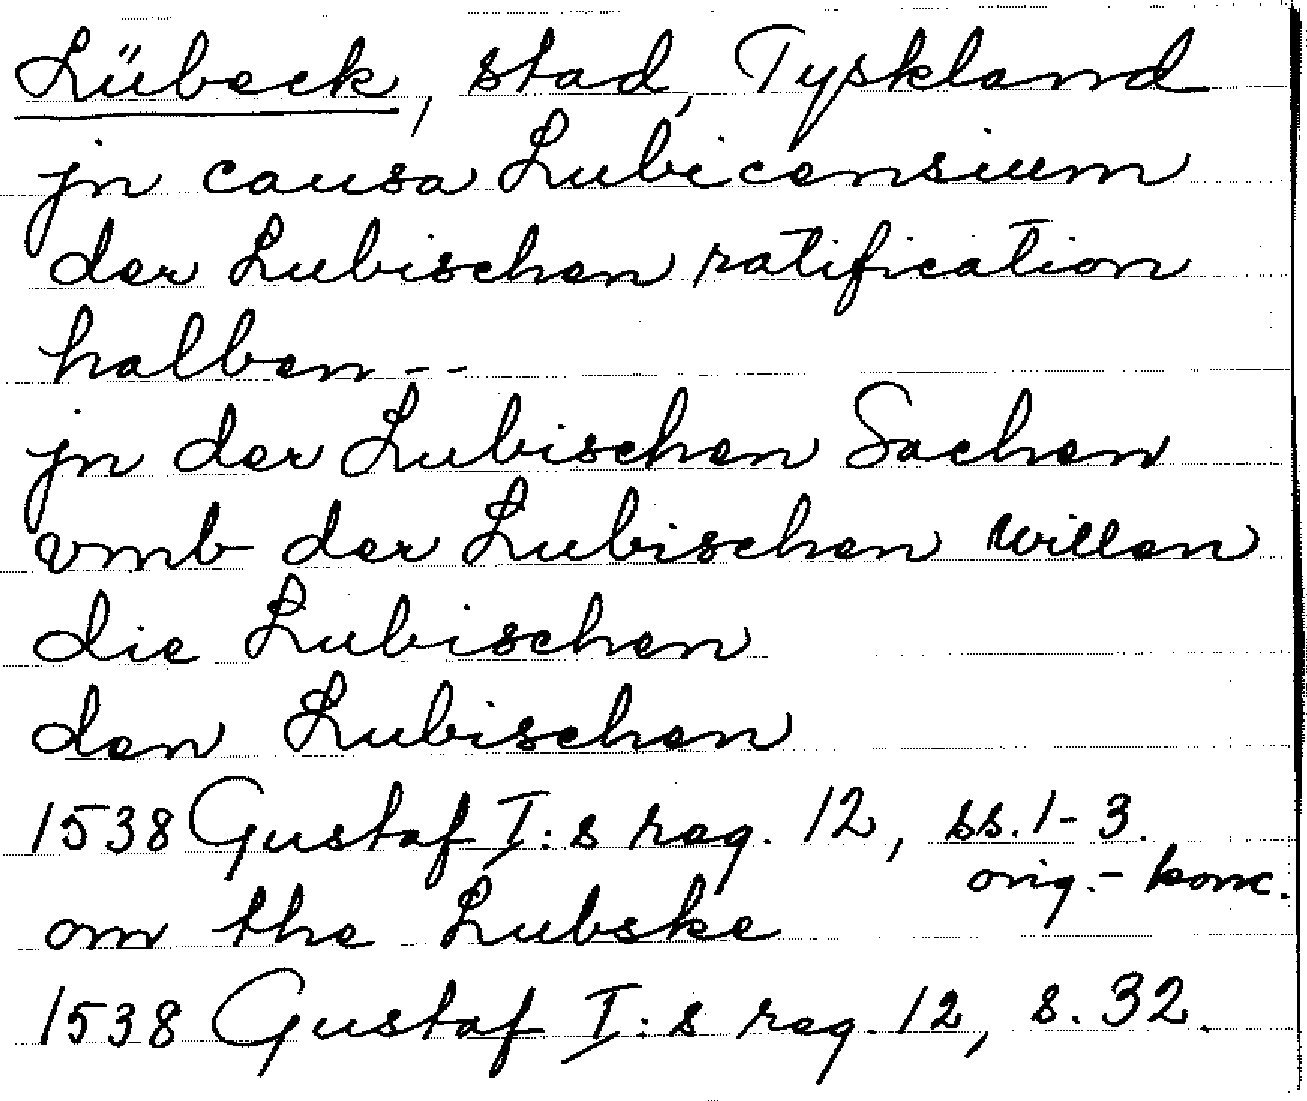 Lübeck, stad, Tyskland
jn causa Lubicensium
der Lubischen ratification
halben--
jn der Lubischen Sachen
vmb der Lubischen willen
die Lubischen
den Lubischen
1538 Gustaf I:s reg. 12, ss. 1-3.
orig.- konc.
om the Lubske
1538 Gustaf I:s reg. 12, s. 32.